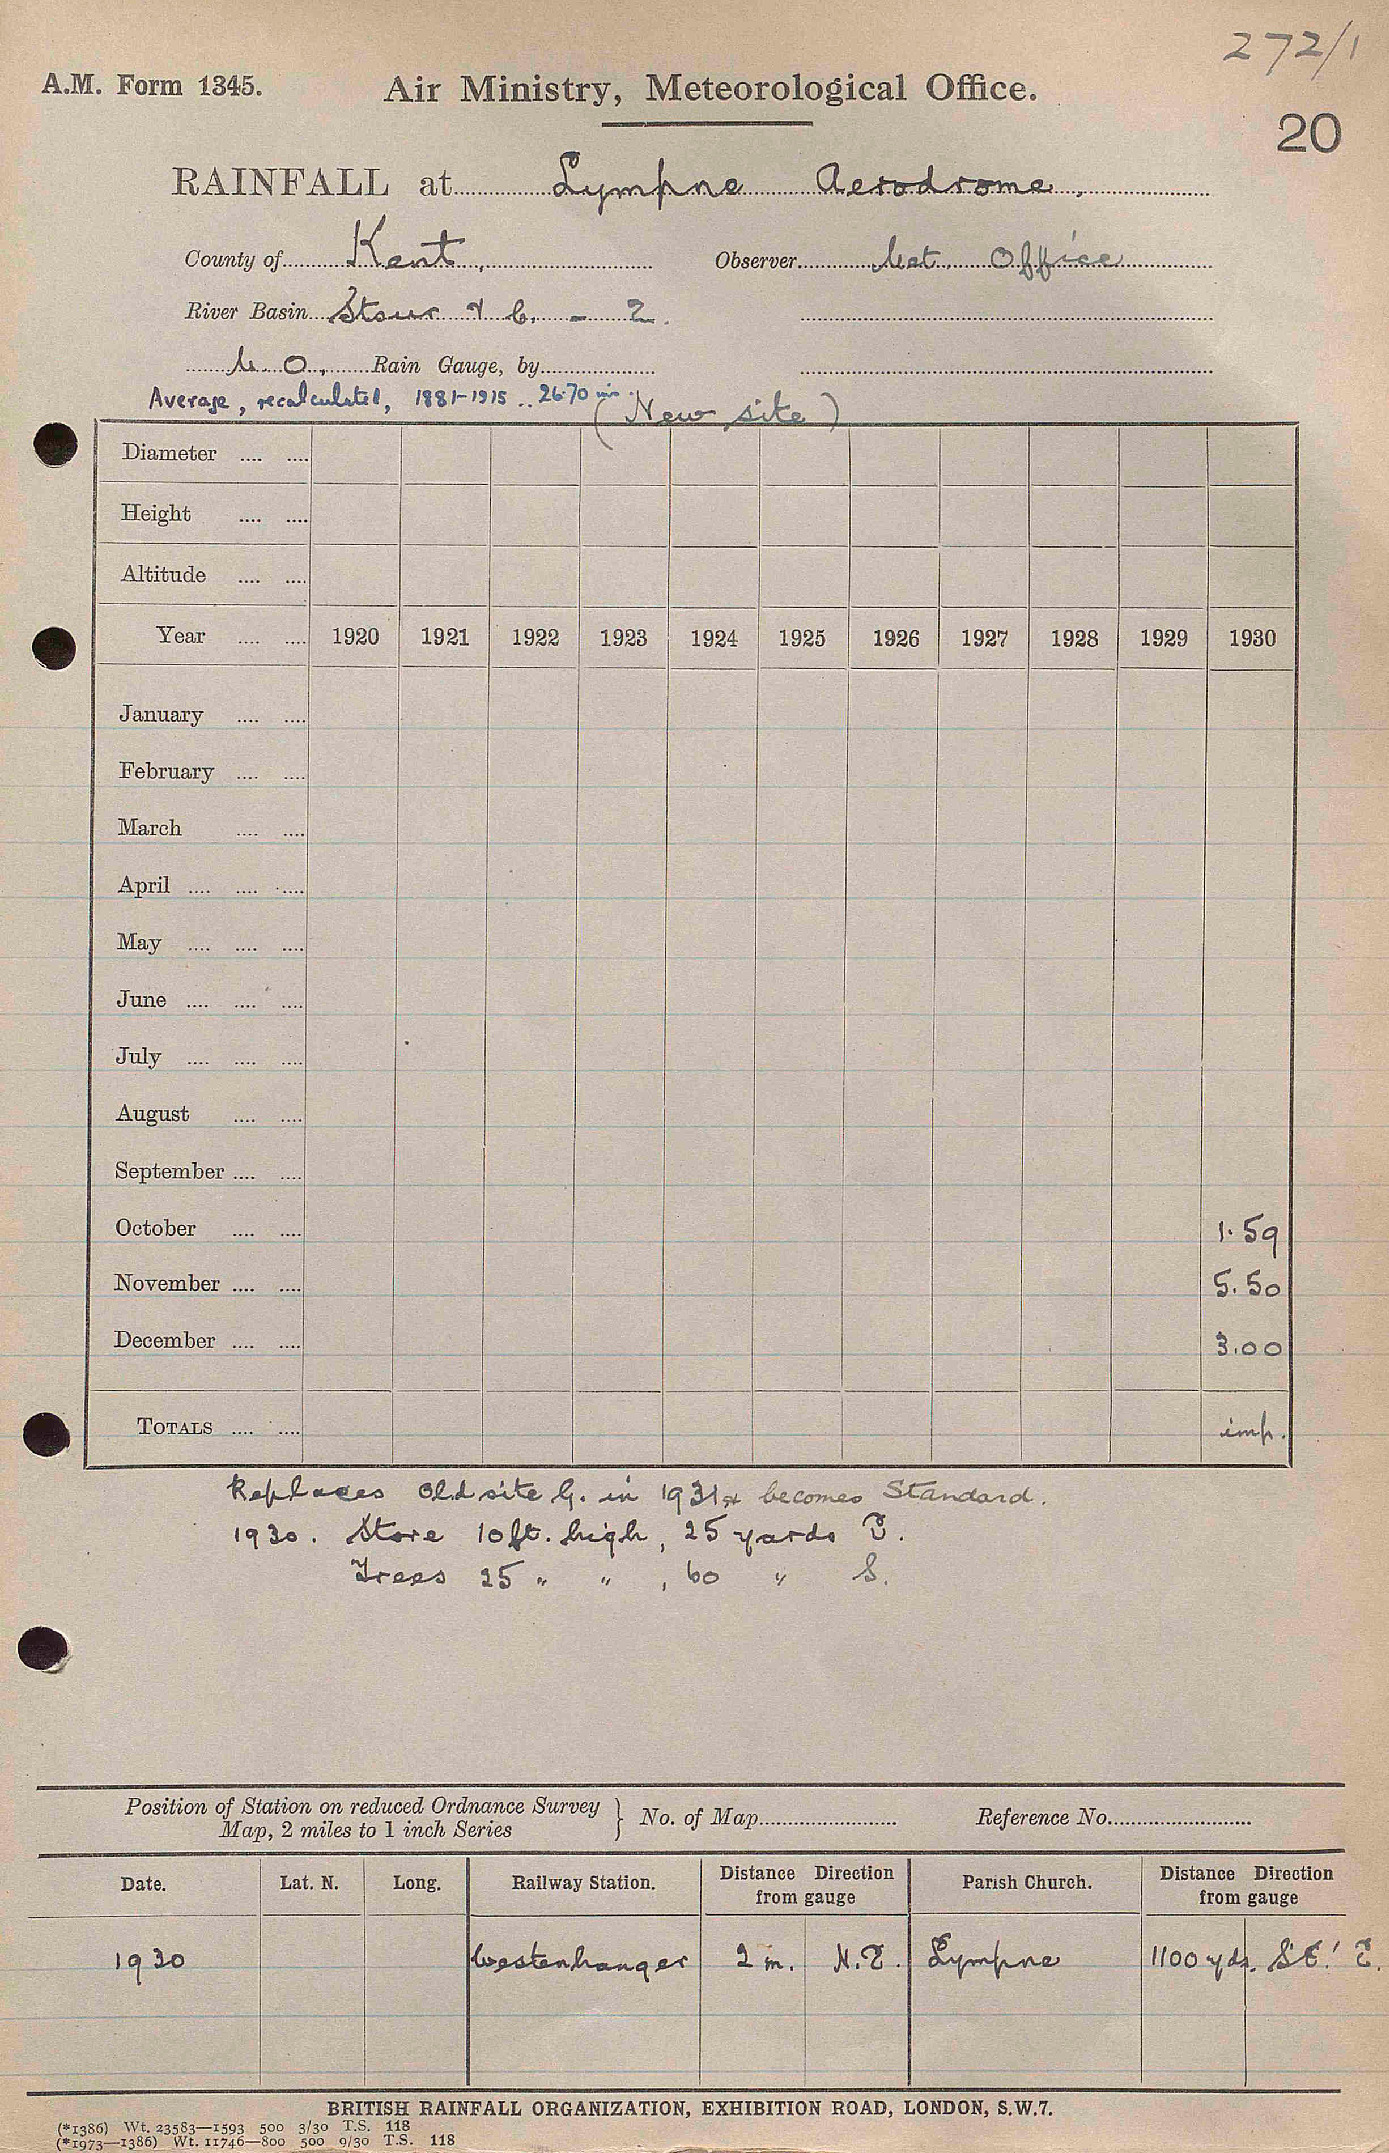 272/1
A.M. Form 1345. Air Ministry, Meteorological Office.
20
RAINFALL at Lympne Aerodrome,
County of Kent, Observer Met Office
River Basin Stour & C. - 2.
M.O. Rain Gauge, by
Average, recalculated, 1881-1915 .. 26.70 ins.
(New site)
Diameter .... ....
Height .... ....
Altitude .... ....
Year .... .... 1920 1921 1922 1923 1924 1925 1926 1927 1928 1929 1930
January .... ....
February .... ....
March .... ....
April .... .... ....
May .... .... ....
June .... .... ....
July .... .... ....
August .... ....
September .... ....
October .... .... 1.59
November .... .... 5.50
December .... .... 3.00
TOTALS .... .... imp.
Replaces old site G. in 1931 & becomes Standard.
1930. Store 10 ft. high, 25 yards E.
Trees 25 " " , 60 " S.
Position of Station on reduced Ordnance Survey Map, 2 miles to 1 inch Series } No. of Map Reference No.
Date. Lat. N. Long. Railway Station. Distance Direction from gauge Parish Church. Distance Direction from gauge
1930 Westenhanger 2 m. N.E. Lympne 1100 yds. S.E.' E.
BRITISH RAINFALL ORGANIZATION, EXHIBITION ROAD, LONDON, S.W.7.
(*1386) Wt. 23583—1593 500 3/30 T.S. 118
(*1973—1386) Wt. 11746—800 500 9/30 T.S. 118